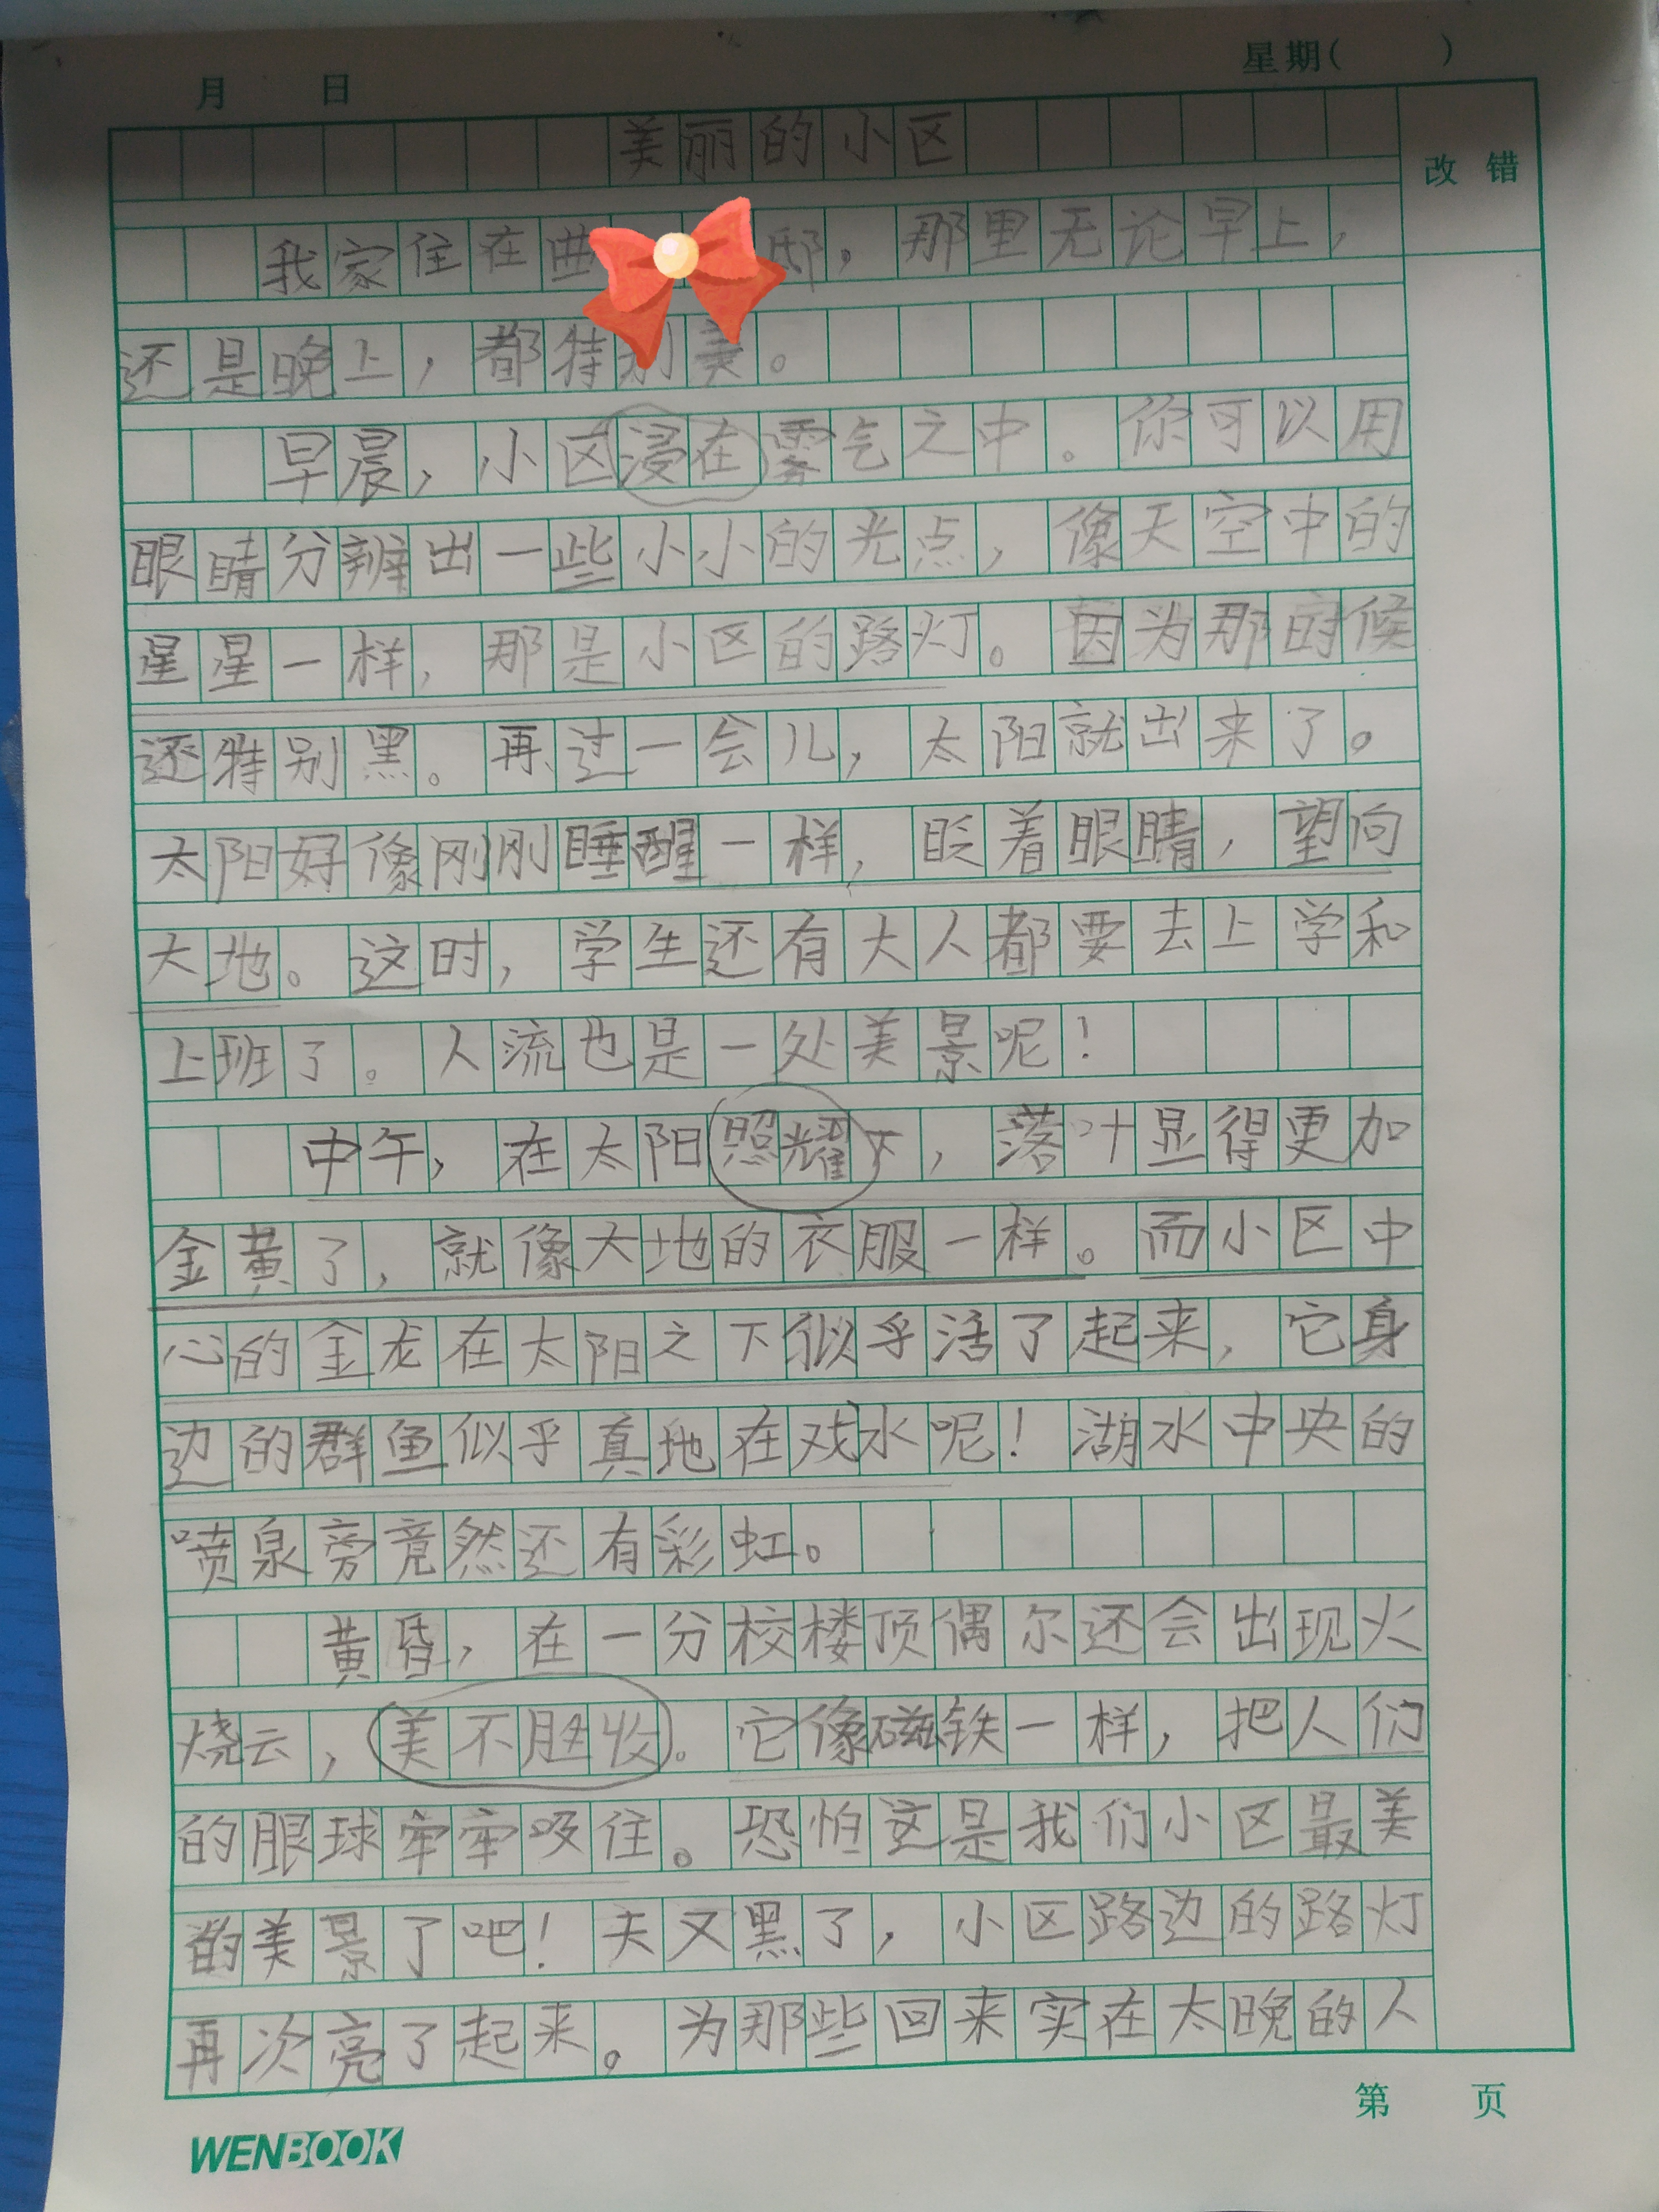 月 日 星期( )
美丽的小区
改错
我家住在曲邸，那里无论早上，
还是晚上，都特别美。
早晨，小区浸在雾气之中。你可以用
眼睛分辨出一些小小的光点，像天空中的
星星一样，那是小区的路灯。因为那时候
还特别黑。再过一会儿，太阳就出来了。
太阳好像刚刚睡醒一样，眨着眼睛，望向
大地。这时，学生还有大人都要去上学和
上班了。人流也是一处美景呢！
中午，在太阳照耀下，落叶显得更加
金黄了，就像大地的衣服一样。而小区中
心的金龙在太阳之下似乎活了起来，它身
边的群鱼似乎真地在戏水呢！湖水中央的
喷泉旁竟然还有彩虹。
黄昏，在一分校楼顶偶尔还会出现火
烧云，美不胜收。它像磁铁一样，把人们
的眼球牢牢吸住。恐怕这是我们小区最美
的美景了吧！天又黑了，小区路边的路灯
再次亮了起来。为那些回来实在太晚的人
第 页
WENBOOK